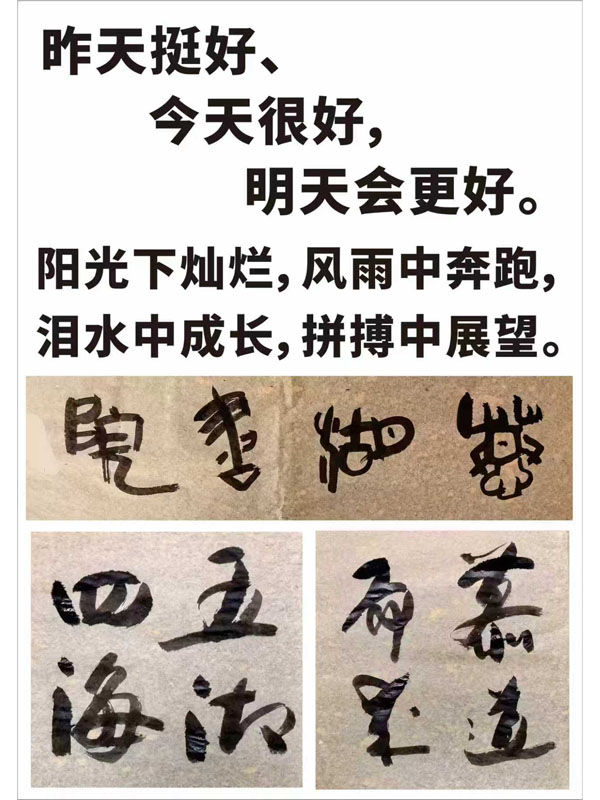 昨天挺好、
今天很好，
明天会更好。
阳光下灿烂，风雨中奔跑，
泪水中成长，拼搏中展望。
湖書院
五湖
四海
慕道